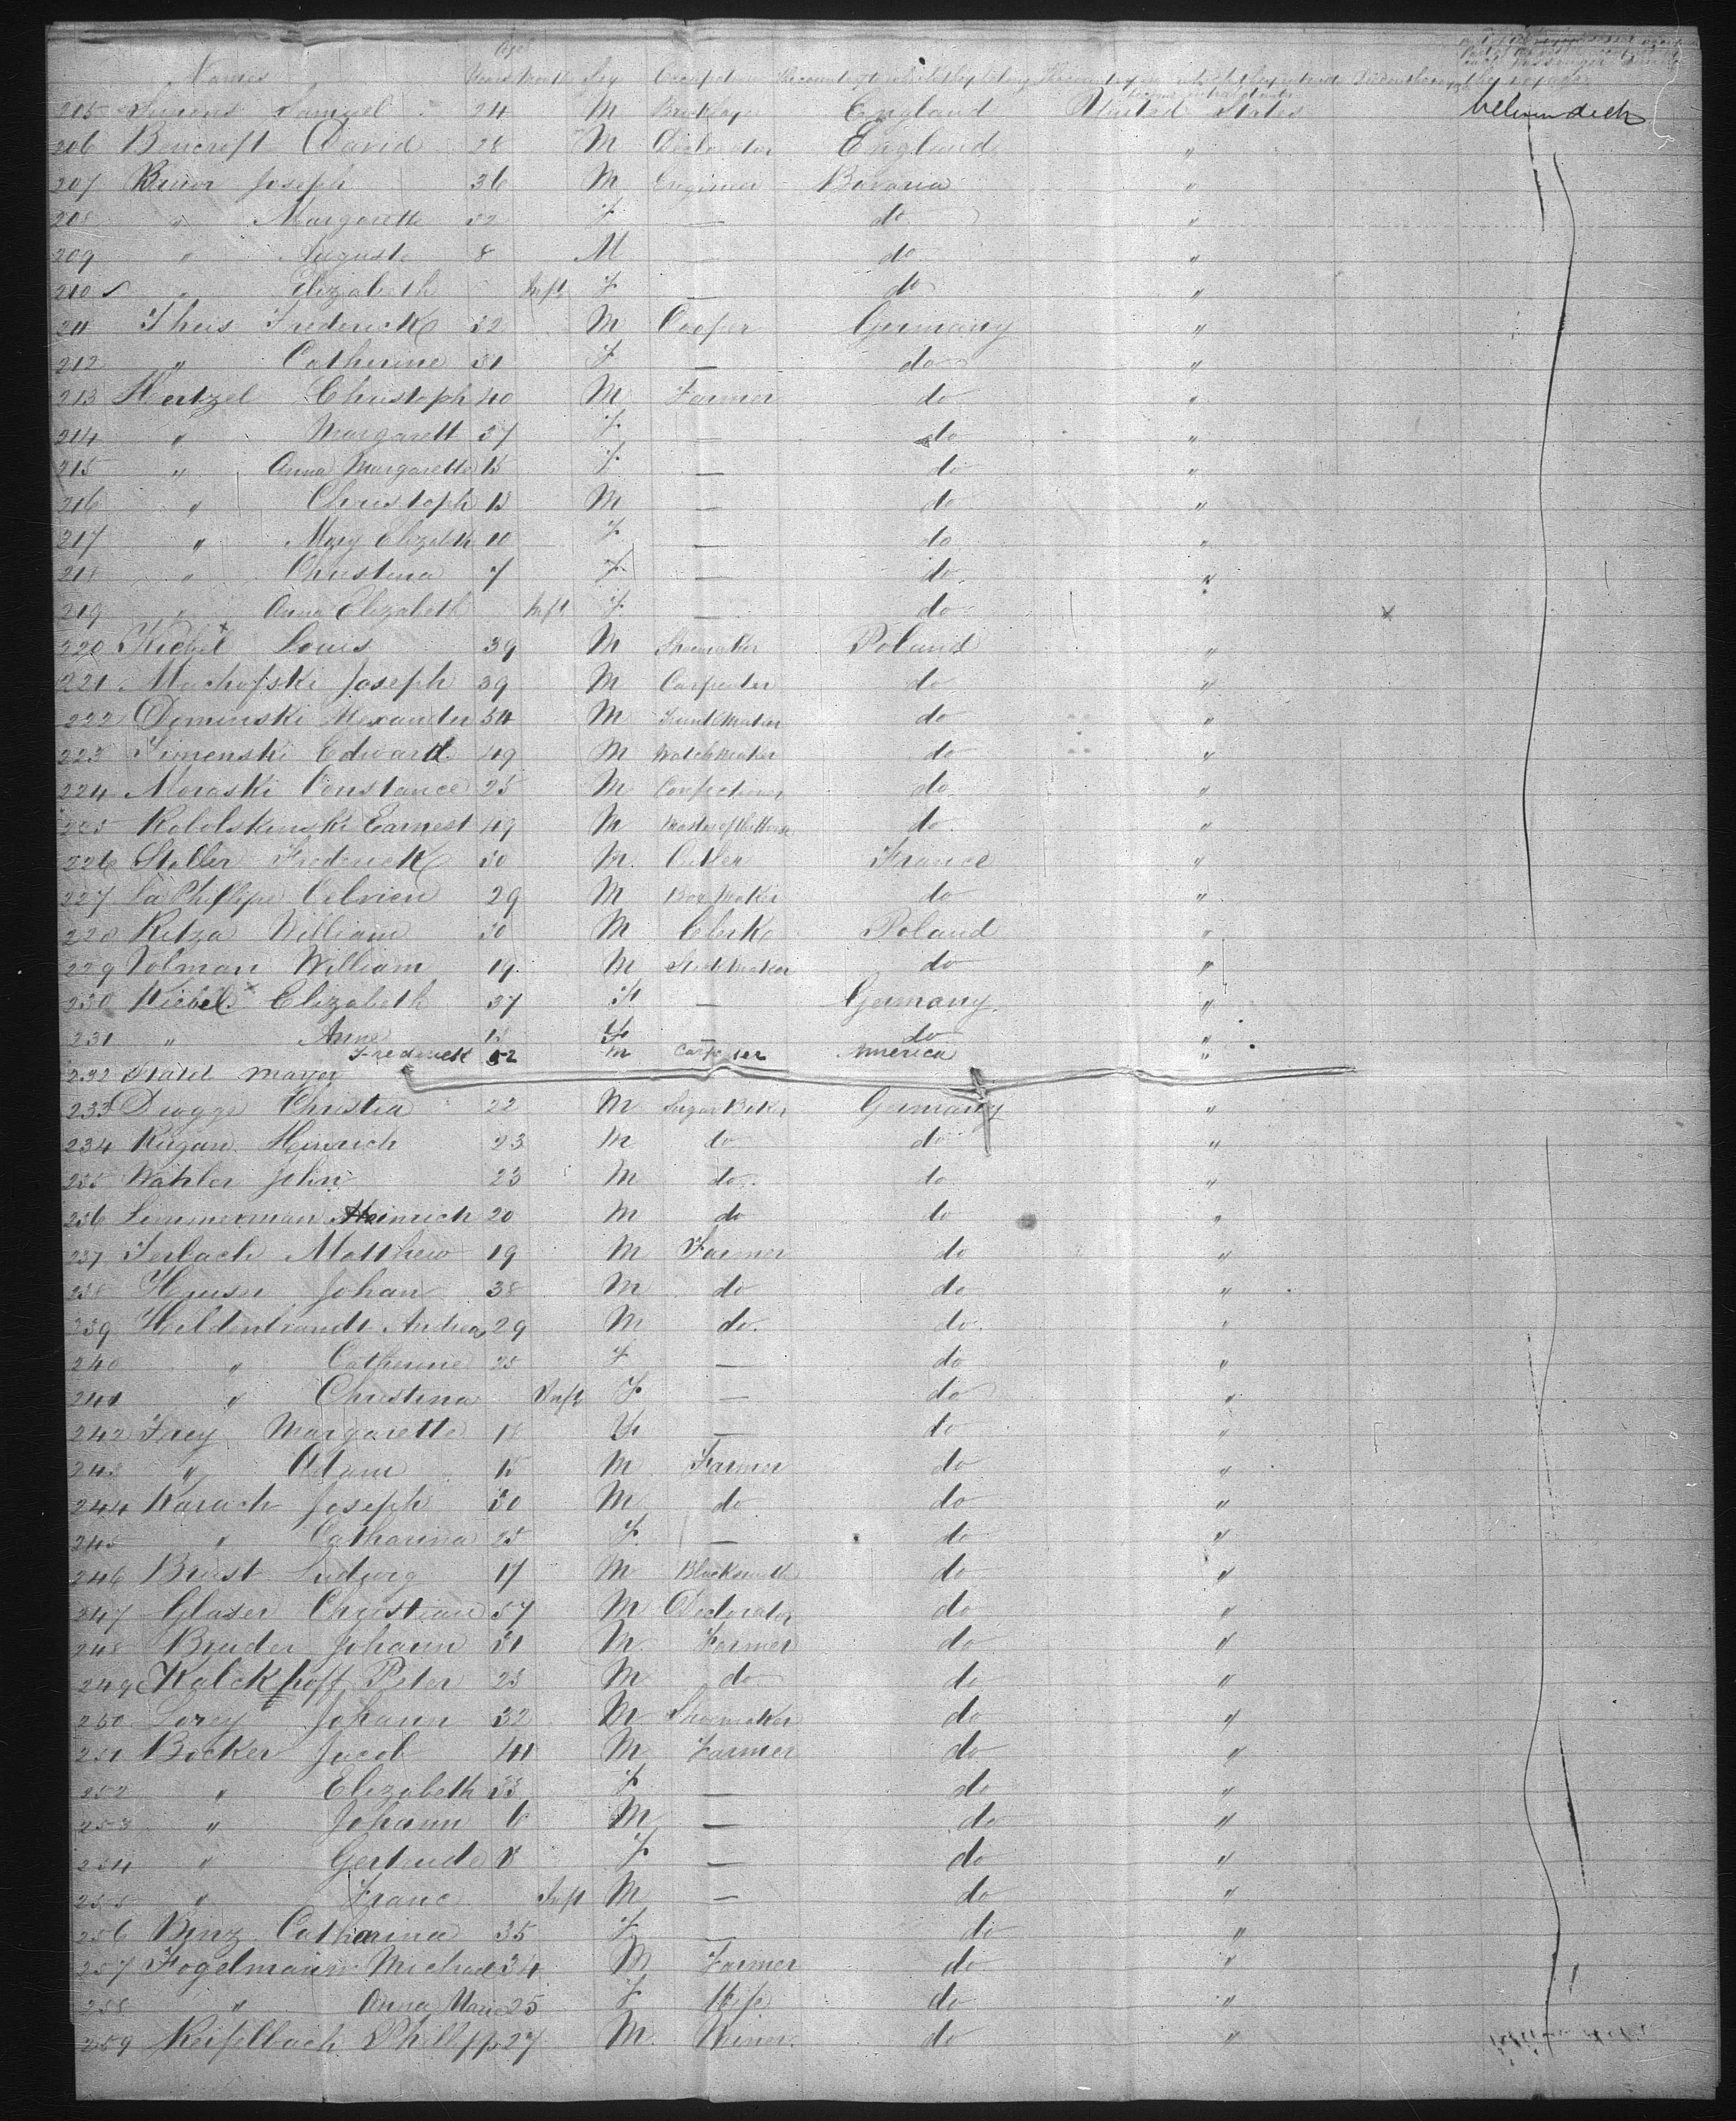 Names Age Years Months Sex Occupation The country to which they belong
205 Simons Samuel 24 M England United States between decks
206 Bencroft David 28 M Decorator England "
207 Joseph 36 M Engineer Bavaria "
208 " Margarette 32 F — do "
209 " Auguste 8 M do "
210 " Elizabeth Inft F — do "
211 Theis Frederick 32 M Cooper Germany "
212 " Catherine 31 F — do "
213 Hertzel Christoph 40 M Farmer do "
214 " Margarett 37 F — do "
215 " Anna Margarette 15 F — do "
216 " Christoph 13 M — do "
217 " Mary Elizabeth 10 F — do "
218 " Christina 7 F — do "
219 " Anna Elizabeth Inft F — do "
220 Kiebel Louis 39 M Shoemaker Poland "
221 Machofski Joseph 39 M Carpenter do "
222 Dominski Alexander 54 M Trunk Maker do "
223 Simenski Edward 49 M Watch Maker do "
224 Moraski Constance 25 M Confectioner do "
225 Kobolskinski Earnest 49 M Master of the Horse do "
226 Staller Frederick 30 M France "
227 La Phillipe 29 M Box Maker do "
228 Kitza William 30 M Clerk Poland "
229 Volman William 19 M do "
230 Kiebel Elizabeth 37 F — Germany "
231 " Anne 18 F — do "
232 Mayer Frederick 52 M Carpenter America "
233 Christia 22 M Sugar Baker Germany "
234 Rugan Heinrich 23 M do do "
235 Wahler John 23 M do do "
236 Simmerman Heinrich 20 M do do "
237 Serbach Matthew 19 M Farmer do "
238 Heuser Johan 38 M do do "
239 Hildenbrandt Andrea 29 M do do "
240 " Catherine 25 F — do "
241 " Christina Inft F — do "
242 Frey Margarette 18 F — do "
243 " Adam 15 M Farmer do "
244 Karach Joseph 30 M do do "
245 " Catharina 25 F — do "
246 Brust Ludwig 17 M Blacksmith do "
247 Glaser Christian 37 M Decorator do "
248 Bruder Johann 31 M Farmer do "
249 Kalckhoff Peter 23 M do do "
250 Lorey Johann 32 M Shoemaker do "
251 Bocker Jacob 41 M Farmer do "
252 " Elizabeth 33 F — do "
253 " Johann 6 M — do "
254 " Gertrude 8 F — do "
255 " Franc Inft M — do "
256 Binz Catharina 35 F — do "
257 Fogelmann Michael 34 M Farmer do "
258 " Anna Marie 25 F Wife do "
259 Keifelbach Phillipp 27 M do "